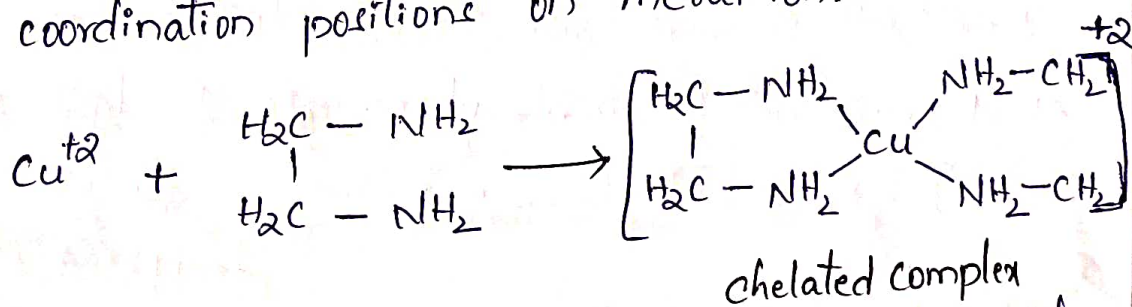 coordination positions on
Cu+2 + H2C — NH2 | H2C — NH2 → [H2C — NH2 NH2-CH2 | Cu H2C — NH2 NH2-CH2]+2
chelated complex